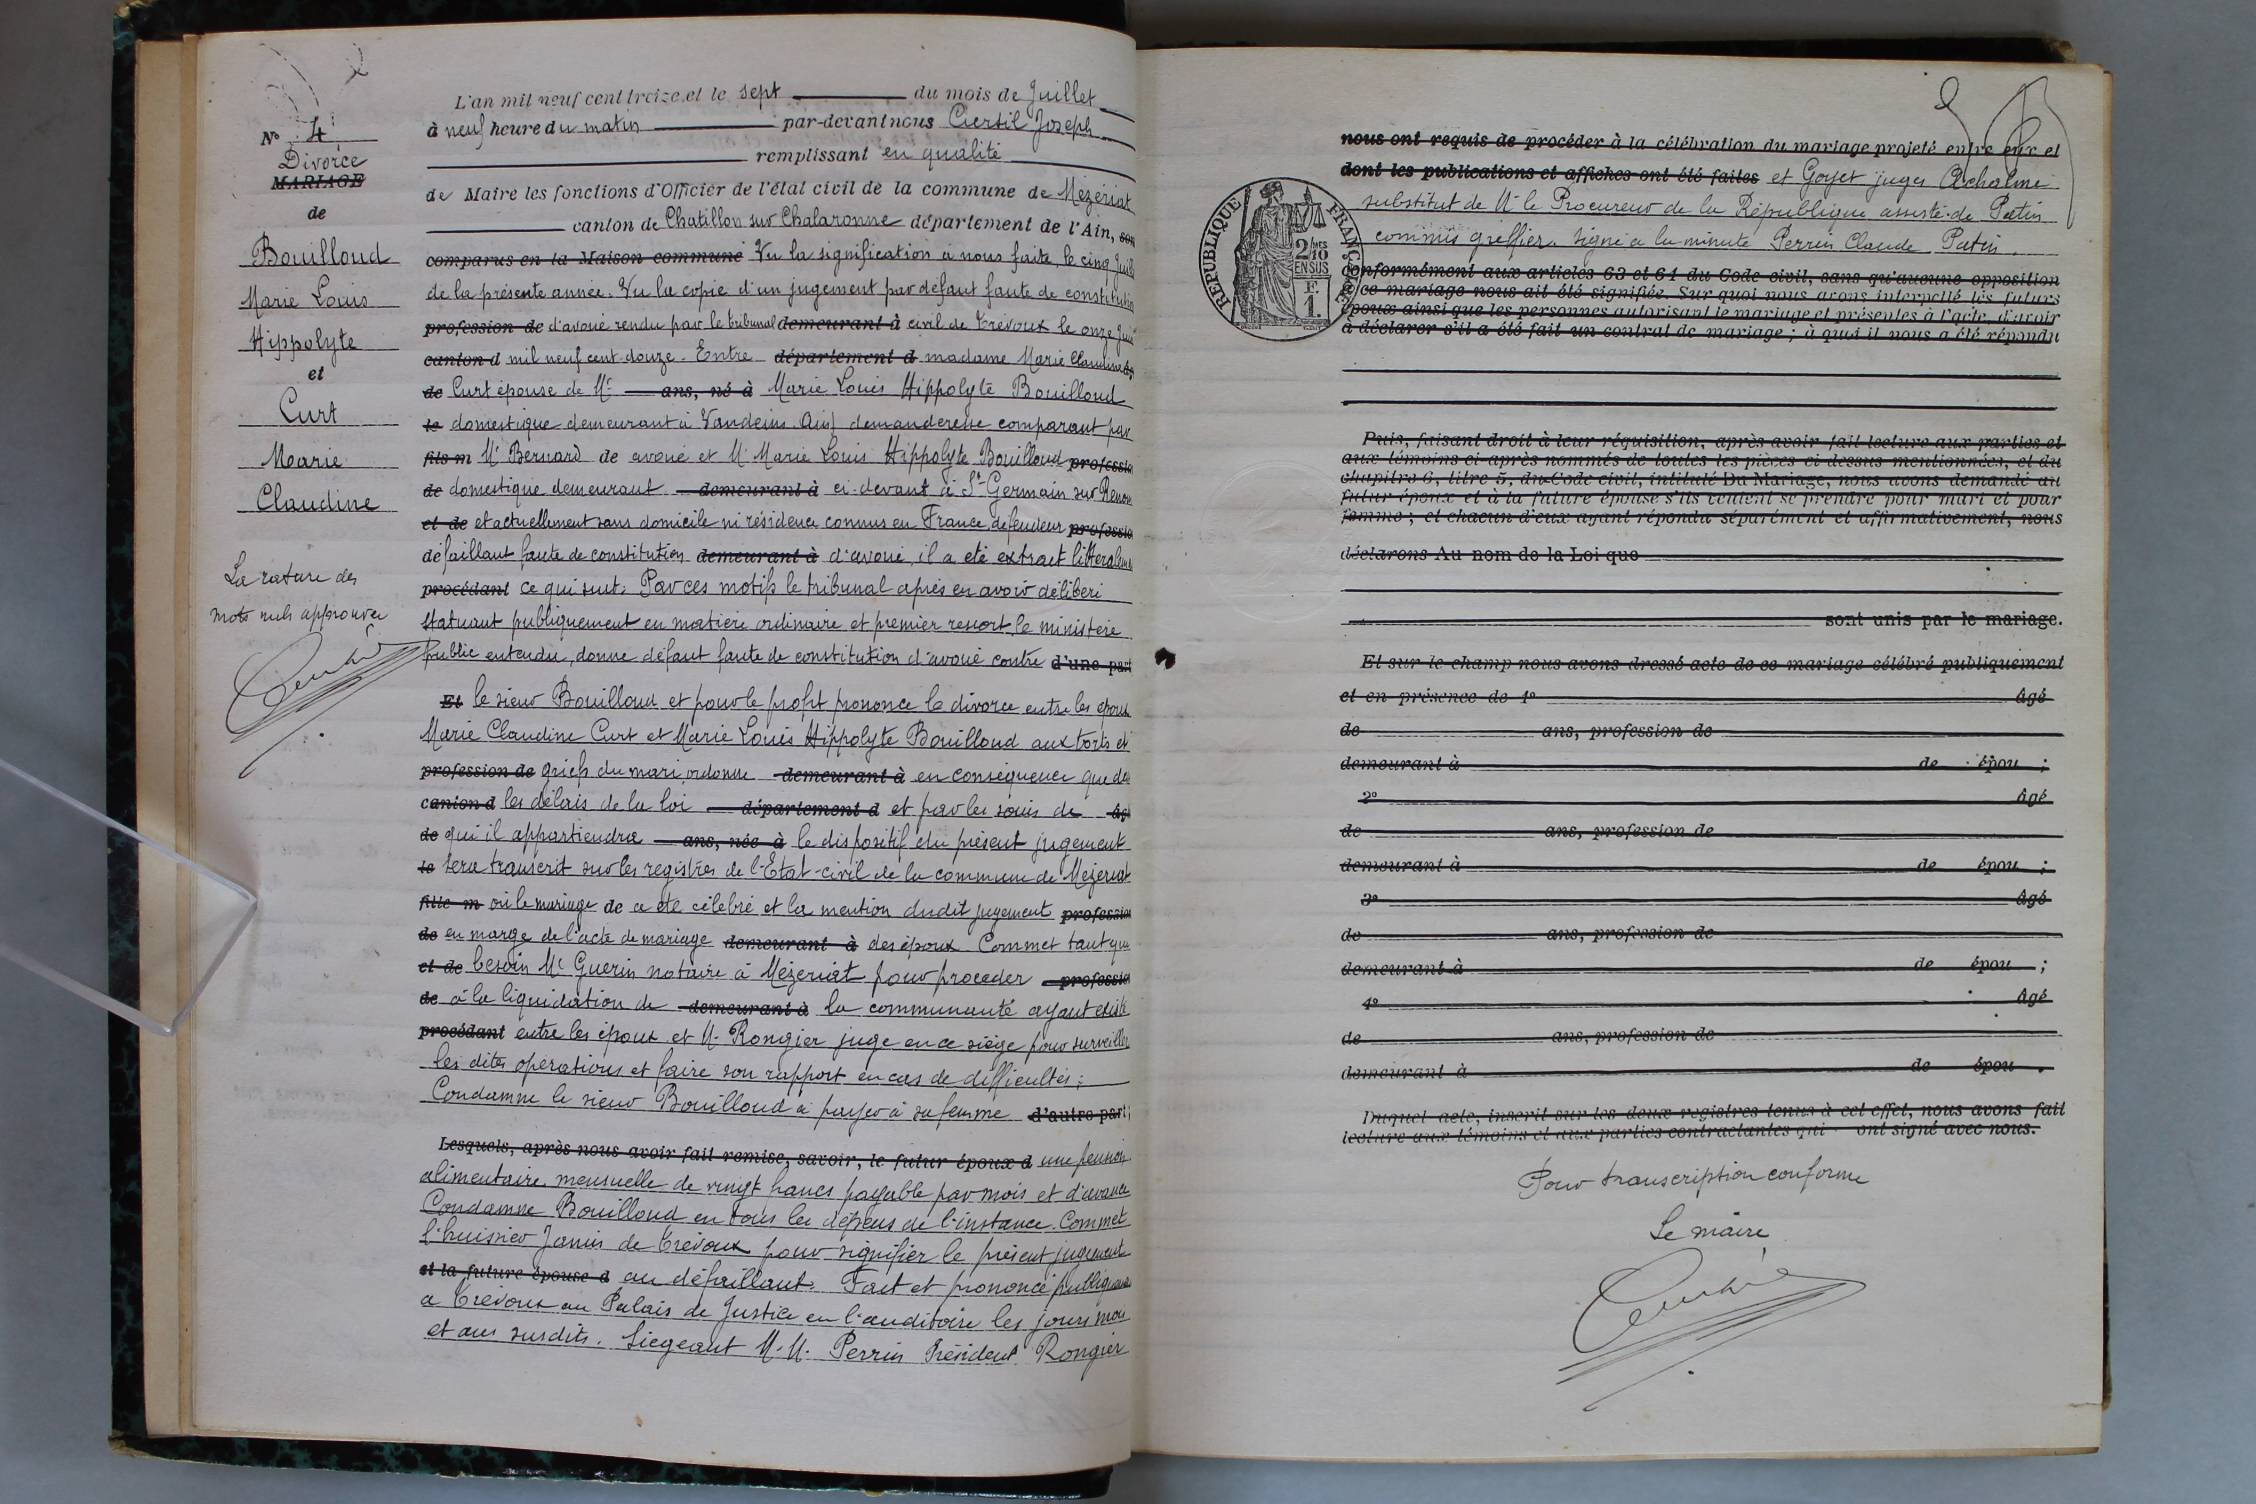 N° 4
Divorce
MARIAGE
de
Bouilloud
Marie Louis
Hippolyte
et
Curt
Marie
Claudine
La rature des
mots nuls approuvée
L'an mil neuf cent treize, et le sept du mois de Juillet
à neuf heure du matin par-devant nous Curtil Joseph
remplissant en qualité
de Maire les fonctions d'Officier de l'état civil de la commune de Mézériat
canton de Chatillon sur Chalaronne département de l'Ain, son
comparus en la Maison commune Vu la signification à nous faite, le cinq Juill
de la présente année. Vu la copie d'un jugement par défaut faute de constitution
profession de d'avoué rendu par le tribunal demeurant à civil de Trévoux le onze Juil
canton d mil neuf cent douze. Entre département d madame Marie Claudine
de Curt épouse de Mr ans, né à Marie Louis Hippolyte Bouilloud
le domestique demeurant à Vandeins Ain) demanderesse comparant par
fils m Me Bernard de avoué et Mr Marie Louis Hippolyte Bouilloud professio
de domestique demeurant demeurant à ci-devant à St Germain sur Renon
et de et actuellement sans domicile ni résidence connus en France, défendeur professio
défaillant faute de constitution demeurant à d'avoué, il a été extrait littéralem
procédant ce qui suit: Par ces motifs le tribunal après en avoir délibéré
statuant publiquement en matière ordinaire et premier ressort le ministère
public entendu, donne défaut faute de constitution d'avoué contre d'une part
Et le sieur Bouilloud et pour le profit prononce le divorce entre les époux
Marie Claudine Curt et Marie Louis Hippolyte Bouilloud aux torts et
profession de griefs du mari ordonne demeurant à en conséquence que da
canton d les délais de la loi département d et par les soins de âgé
de qui il appartiendra ans, née à le dispositif du présent jugement
le sera transcrit sur les registres de l'Etat-civil de la commune de Mézériat
fille m où le mariage de a été célébré et la mention dudit jugement profession
de en marge de l'acte de mariage demeurant à des époux Commet tant que
et de besoin Me Guerin notaire à Mézériat pour procéder professio
de à la liquidation de demeurant à la communauté ayant existé
procédant entre les époux et M. Rongier juge en ce siège pour surveiller
les dites opérations et faire son rapport en cas de difficultés;
Condamne le sieur Bouilloud à payer à sa femme d'autre part;
Lesquels, après nous avoir fait remise, savoir, le futur époux d une pension
alimentaire mensuelle de vingt francs payable par mois et d'avance
Condamne Bouilloud en tous les dépens de l'instance. Commet
l'huissier Janin de Trévoux pour signifier le présent jugement
et la future épouse d au défaillant. Fait et prononcé publiquem
à Trévoux au Palais de Justice en l'auditoire les jours mois
et an susdits. Siégeant M.M. Perrin Président Rongier
nous ont requis de procéder à la célébration du mariage projeté entre eux et
dont les publications et affiches ont été faites et Goyet juges Achalme
substitut de M. le Procureur de la République assisté de Patin
commis greffier. Signé à la minute Perrin Claude Patin
RÉPUBLIQUE FRANÇAISE
2/10 MES
EN SUS
F.
1.
conformément aux articles 63 et 64 du Code civil, sans qu'aucune opposition
à ce mariage nous ait été signifiée. Sur quoi nous avons interpellé les futurs
époux ainsi que les personnes autorisant le mariage et présentes à l'acte, d'avoir
à déclarer s'il a été fait un contrat de mariage ; à quoi il nous a été répondu
Puis, faisant droit à leur réquisition, après avoir fait lecture aux parties et
aux témoins ci-après nommés de toutes les pièces ci-dessus mentionnées, et du
chapitre 6, titre 5, du Code civil, intitulé Du Mariage, nous avons demandé au
futur époux et à la future épouse s'ils veulent se prendre pour mari et pour
femme ; et chacun d'eux ayant répondu séparément et affirmativement, nous
déclarons Au nom de la Loi que
sont unis par le mariage.
Et sur le champ nous avons dressé acte de ce mariage célébré publiquement
et en présence de 1° âgé
de ans, profession de
demeurant à de épou ;
2° âgé
de ans, profession de
demeurant à de épou ;
3° âgé
de ans, profession de
demeurant à de épou ;
4° âgé
de ans, profession de
demeurant à de épou .
Duquel acte, inscrit sur les deux registres tenus à cet effet, nous avons fait
lecture aux témoins et aux parties contractantes qui ont signé avec nous.
Pour transcription conforme
Le maire